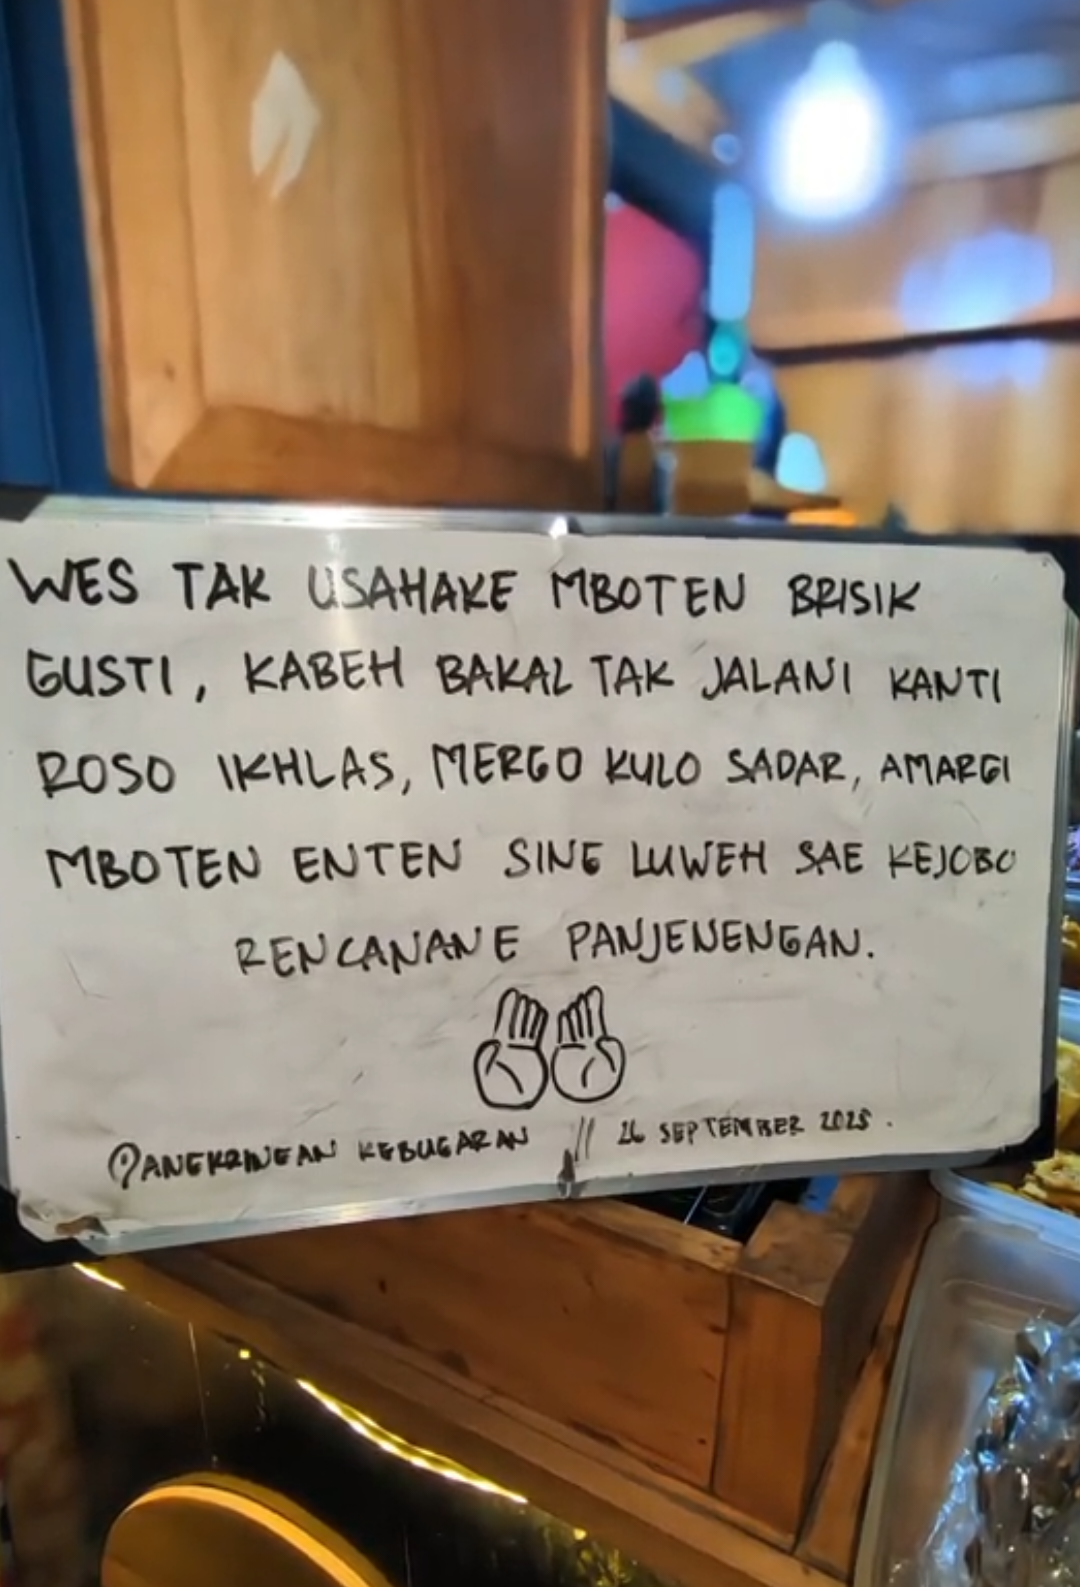 WES TAK USAHAKE MBOTEN BRISIK
GUSTI, KABEH BAKAL TAK JALANI KANTI
ROSO IKHLAS, MERGO KULO SADAR, AMARGI
MBOTEN ENTEN SING LUWEH SAE KEJOBO
RENCANANE PANJENENGAN.
@ANGKRINGAN KEBUGARAN // 26 SEPTEMBER 2025.